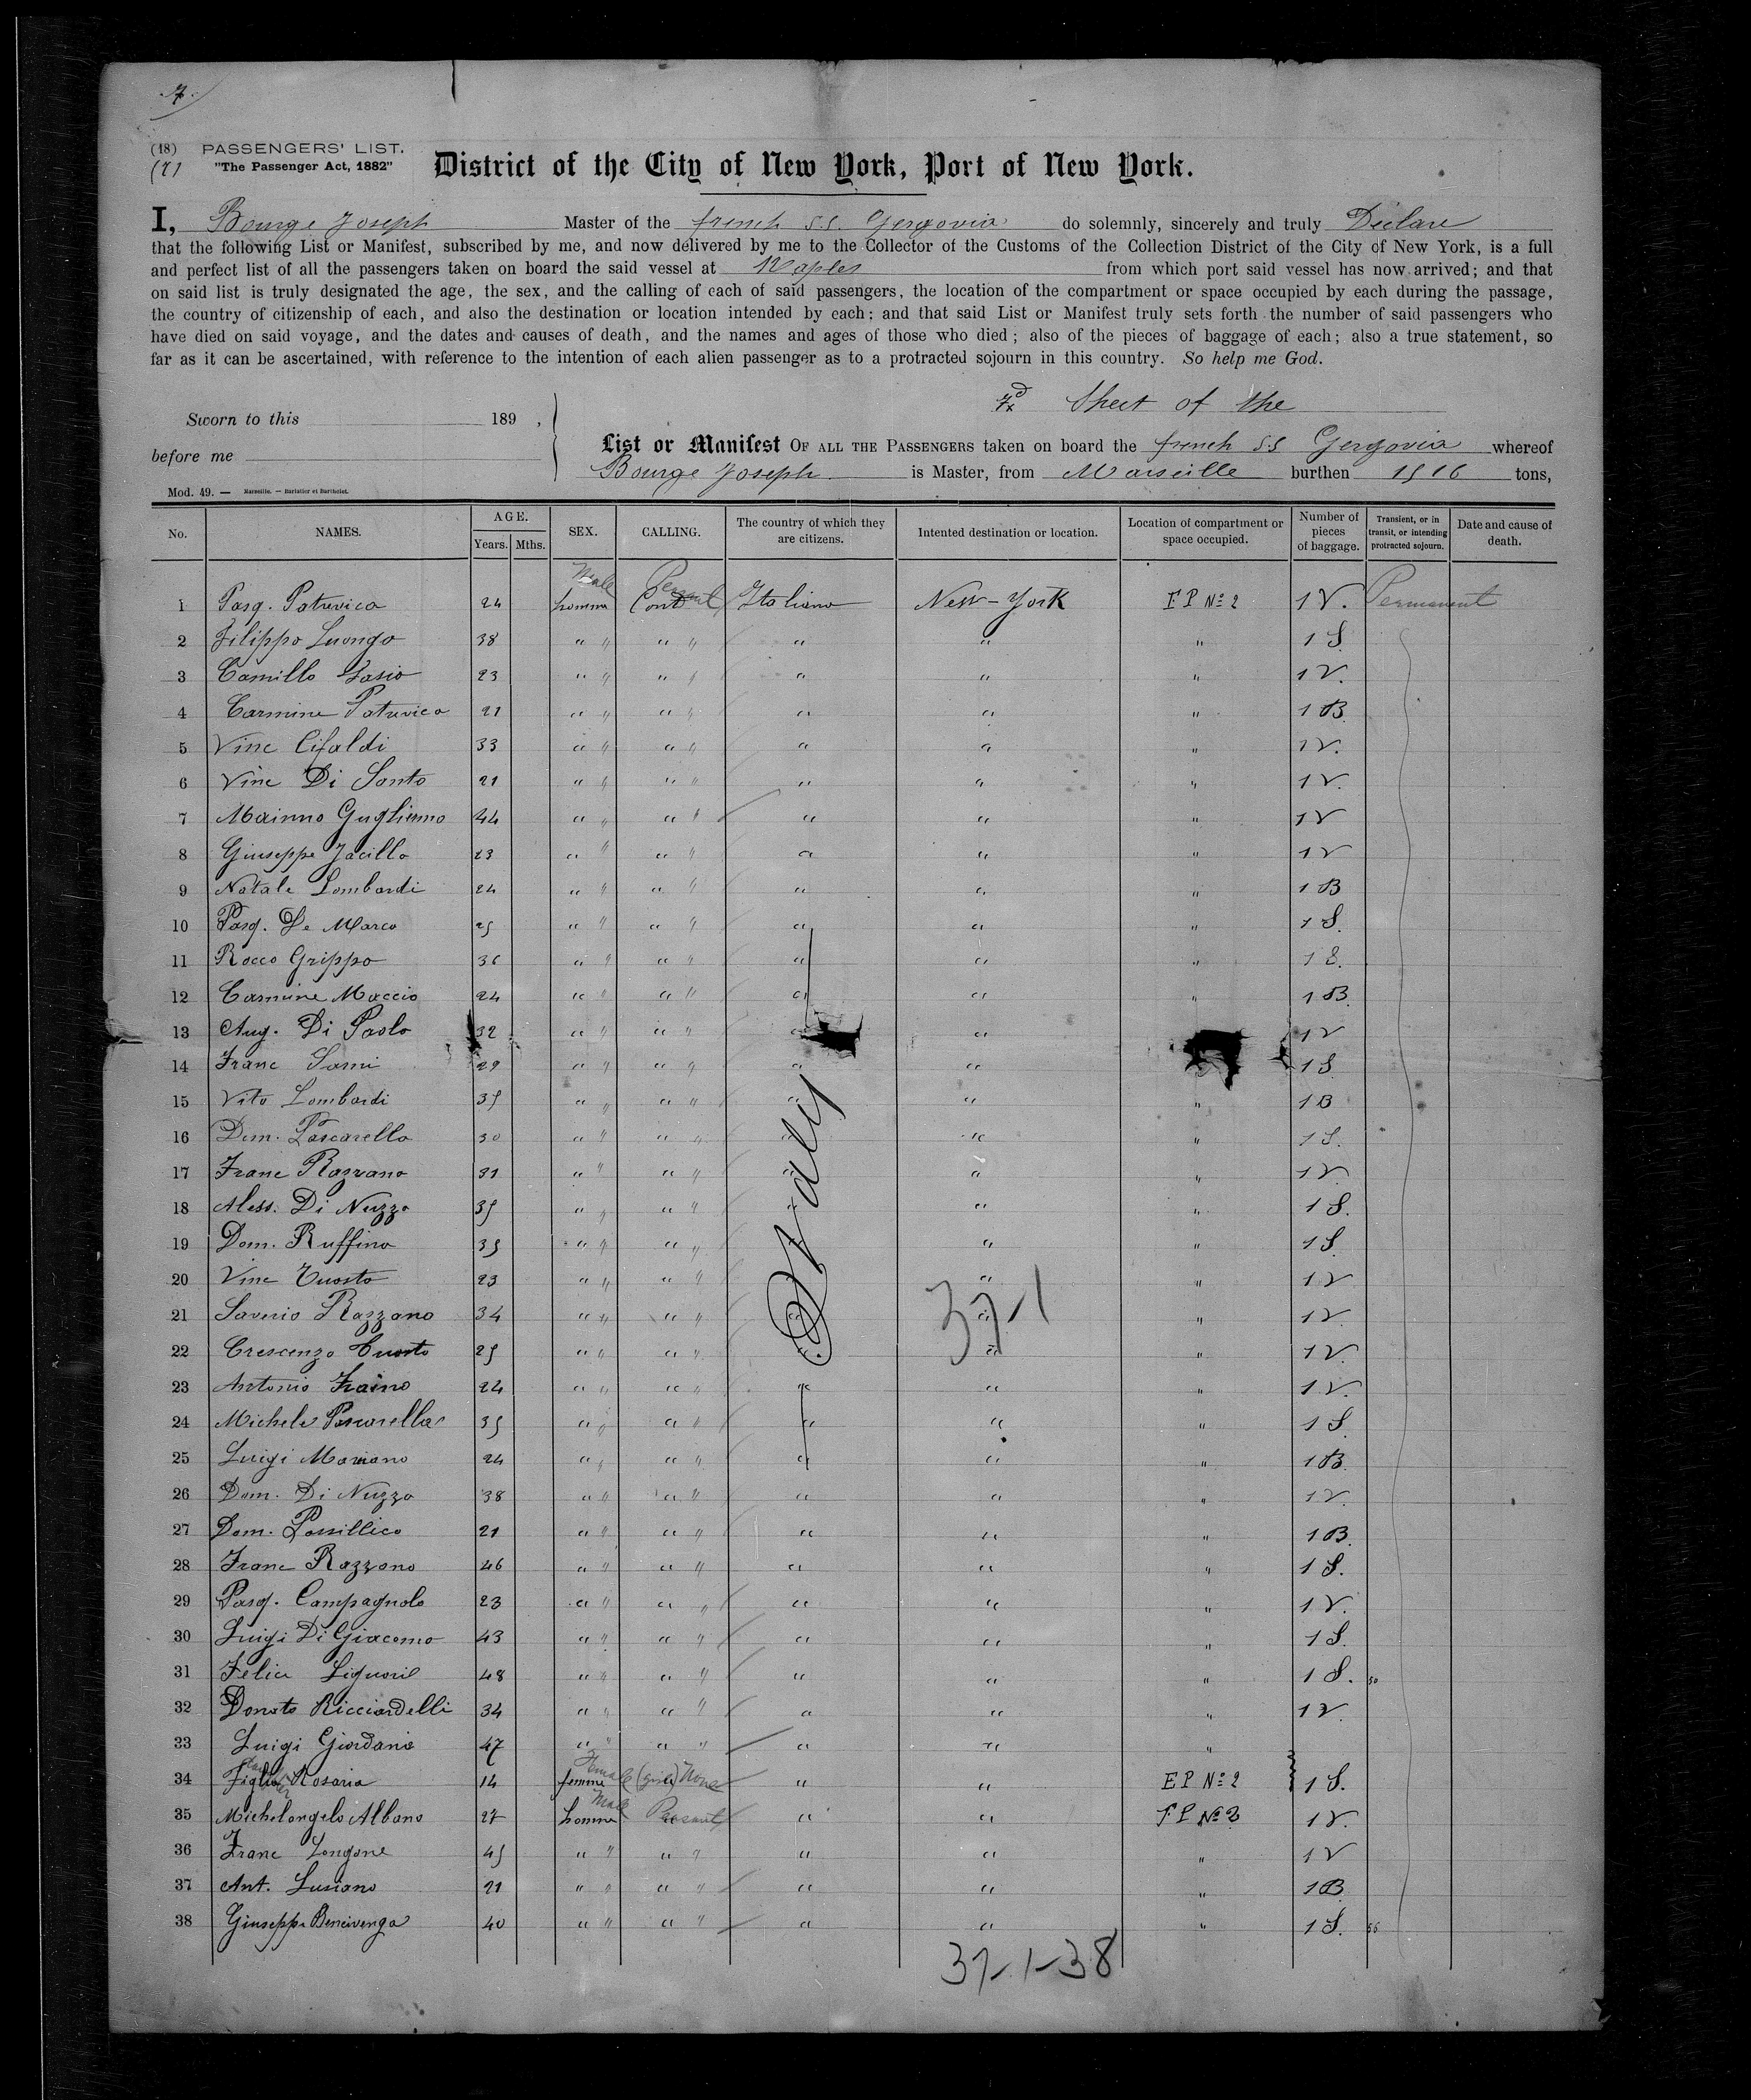 7.
(18) PASSENGERS' LIST.
(7) "The Passenger Act, 1882"
District of the City of New York, Port of New York.
I, Bourge Joseph Master of the french S.S. Gergovia do solemnly, sincerely and truly Déclare
that the following List or Manifest, subscribed by me, and now delivered by me to the Collector of the Customs of the Collection District of the City of New York, is a full
and perfect list of all the passengers taken on board the said vessel at Naples from which port said vessel has now arrived; and that
on said list is truly designated the age, the sex, and the calling of each of said passengers, the location of the compartment or space occupied by each during the passage,
the country of citizenship of each, and also the destination or location intended by each; and that said List or Manifest truly sets forth the number of said passengers who
have died on said voyage, and the dates and causes of death, and the names and ages of those who died; also of the pieces of baggage of each; also a true statement, so
far as it can be ascertained, with reference to the intention of each alien passenger as to a protracted sojourn in this country. So help me God.
Sheet of the
Sworn to this 189 ,
List or Manifest OF ALL THE PASSENGERS taken on board the french S.S Gergovia whereof
before me
Bourge Joseph is Master, from Marseille burthen tons,
Mod. 49. — Marseille. — Barlatier et Barthelet.
No. NAMES. AGE. Years. Mths. SEX. CALLING. The country of which they are citizens. Intented destination or location. Location of compartment or space occupied. Number of pieces of baggage. Transient, or in transit, or intending protracted sojourn. Date and cause of death.
Male
1 Pasq. Petruvica 24 homme Italiano New-York F.P Nº 2 1 V. Permanent
2 Filippo Luongo 38 " " " " " " " 1 S.
3 Camillo Fasio 23 " " " " " " " 1 V.
4 Carmine Petruvica 21 " " " " " " " 1 B.
5 Vinc Cifaldi 33 " " " " " " " 1 V.
6 Vinc Di Santo 21 " " " " " " " 1 V.
7 Guglielmo 44 " " " " " " " 1 V
8 Giuseppe Jacillo 23 " " " " " " " 1 V
9 Natale Lombardi 24 " " " " " " " 1 B
10 Pasq. De Marco 25 " " " " " " " 1 S.
11 Rocco Grippo 36 " " " " " " " 1 S.
12 Carmine Maccio 24 " " " " " " " 1 B.
13 Aug. Di Paolo 32 " " " " " " 1 V
14 Franc 29 " " " " " " 1 S
15 Vito Lombardi 35 " " " " " " " 1 B
16 Dom. Pascarella 30 " " " " " " " 1 S.
17 Franc Razzano 31 " " " " " " " 1 V
18 Aless. Di Nuzzo 35 " " " " " " " 1 S.
19 Dom. Ruffino 35 " " " " " " " 1 S.
20 Vinc Cuosto 23 " " " " " " " 1 V
21 Saverio Razzano 34 " " " " " " " 1 V.
22 Crescenzo Cuosto 25 " " " " " " " 1 V.
23 Antonio Fraino 24 " " " " " " " 1 V.
24 Michele Pascarella 35 " " " " " " " 1 S.
25 Luigi Mariano 24 " " " " " " " 1 B.
26 Dom. Di Nuzzo 38 " " " " " " " 1 V.
27 Dom. Possillico 21 " " " " " " " 1 B.
28 Franc Razzano 46 " " " " " " " 1 S.
29 Pasq. Campagnolo 23 " " " " " " " 1 V.
30 Luigi Di Giacomo 43 " " " " " " " 1 S.
31 Felice Liguori 48 " " " " " " " 1 S. 50
32 Donato Ricciardelli 34 " " " " " " " 1 V.
33 Luigi Giordano 47 " " " " " " "
Female
34 Figlia Rosaria 14 femme (girl) None " " E P Nº 2 1 S.
Male
35 Michelangelo Albano 27 homme Peasant " " F.P Nº 2 1 V.
36 Franc Longone 45 " " " " " " " 1 V
37 Ant. Lusiano 21 " " " " " " " 1 B.
38 Giuseppe Bencivenga 40 " " " " " " " 1 S. 56
Italy
37-1
37-1-38